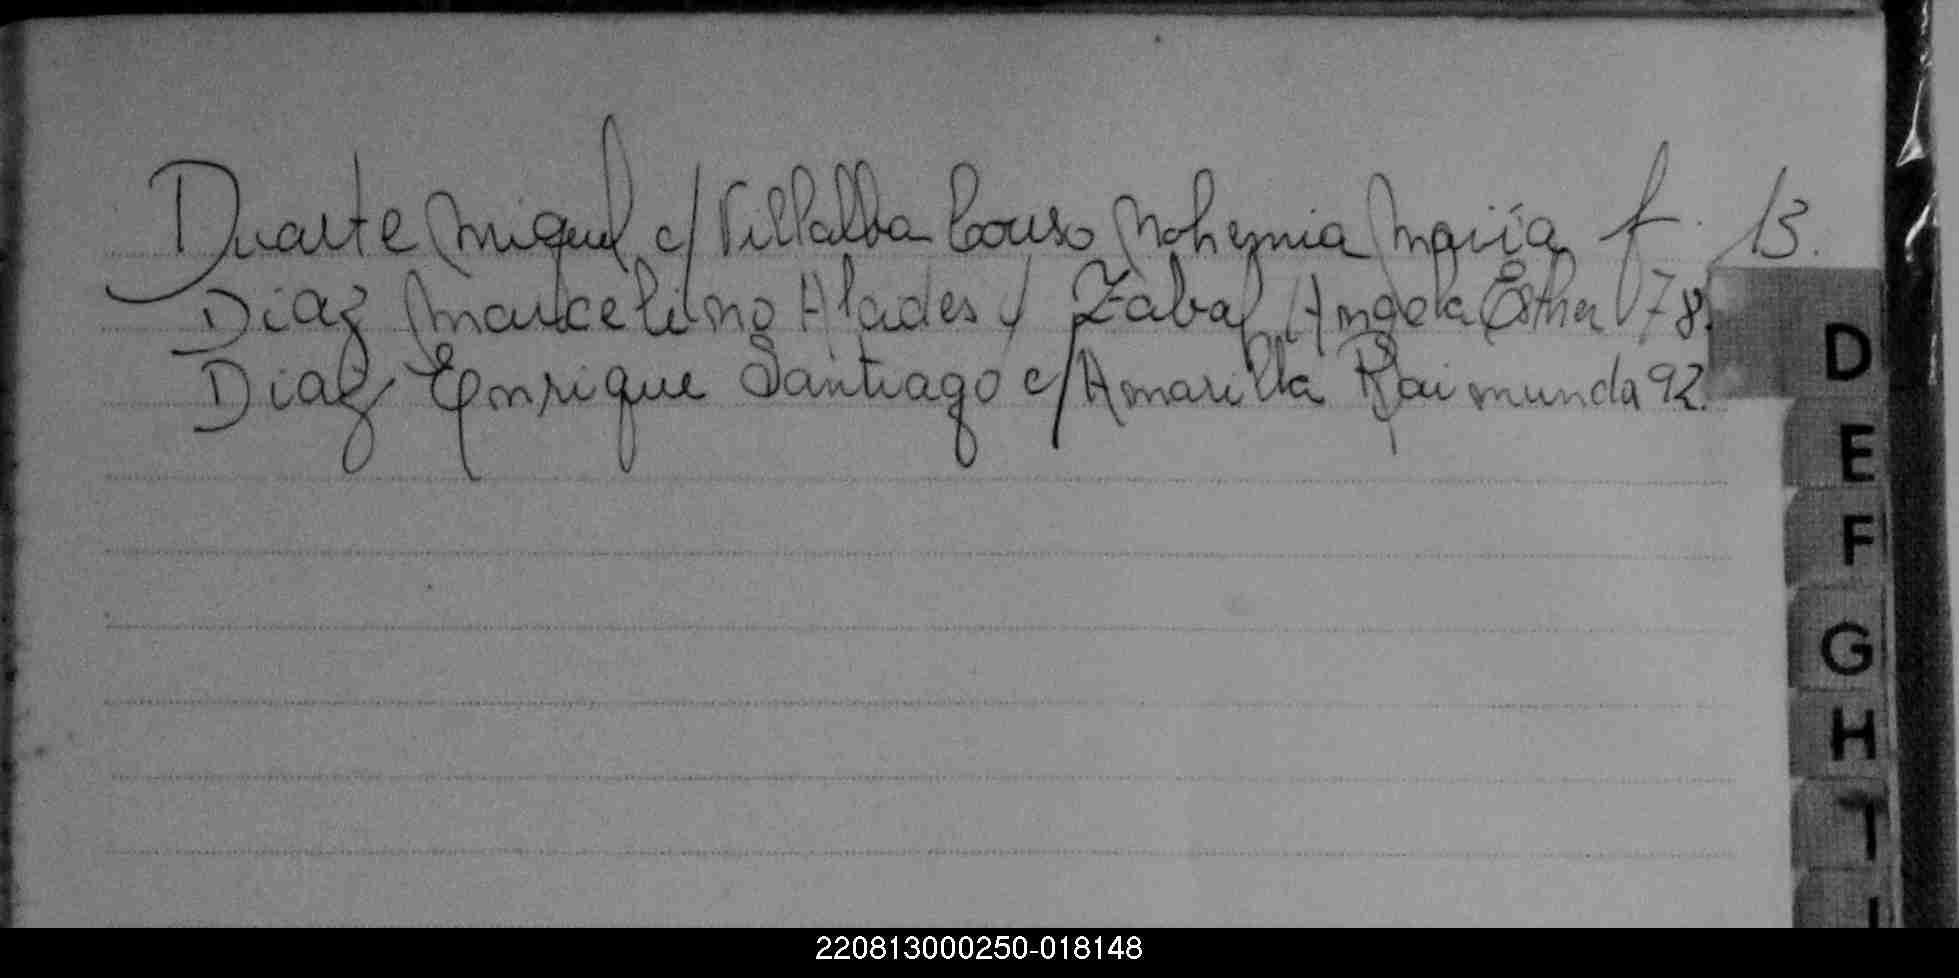 Duarte Miguel c/ Villalba Couso Nohemia María f. 13.
Diaz Marcelino Alades c/ Zabal Angela Esther 78.
Diaz Enrique Santiago c/ Amarilla Raimunda 92.
D
E
F
G
H
I
J
220813000250-018148